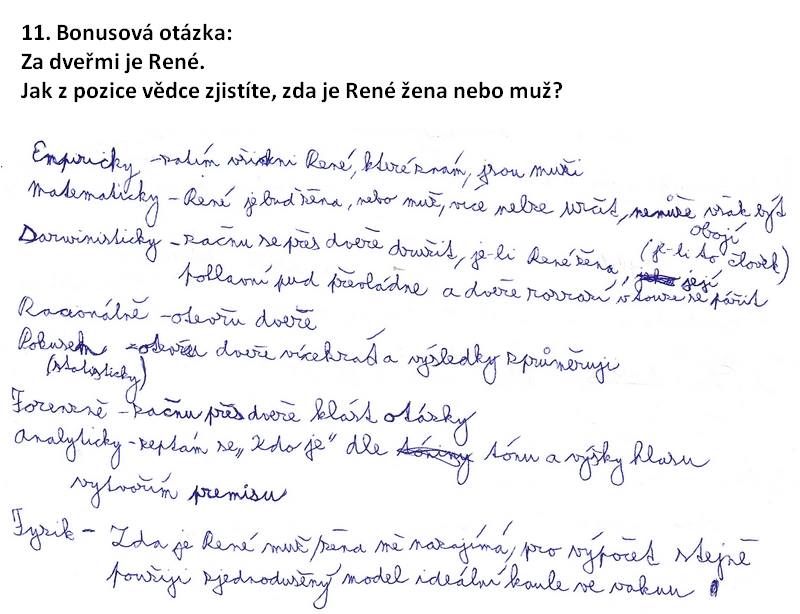 11. Bonusová otázka:
Za dveřmi je René.
Jak z pozice vědce zjistíte, zda je René žena nebo muž?
Empiricky - zatím všichni René, které znám, jsou muži
Matematicky - René je buď žena, nebo muž, více nelze určit, nemůže však být obojí
(je-li to člověk)
Darwinisticky - začnu se přes dveře dvořit, je-li René žena, její
pohlavní pud převládne a dveře rozrazí v touze se pářit
Racionálně - otevřu dveře
Pokusem - otevřu dveře vícekrát a výsledky zprůměruji
(statisticky)
Forenzně - začnu přes dveře klást otázky
Analyticky - zeptám se „Kdo je" dle tónu a výšky hlasu
vytvořím premisu
Fyzik - Zda je René muž/žena mě nezajímá, pro výpočet stejně
použiji zjednodušený model ideální koule ve vakuu